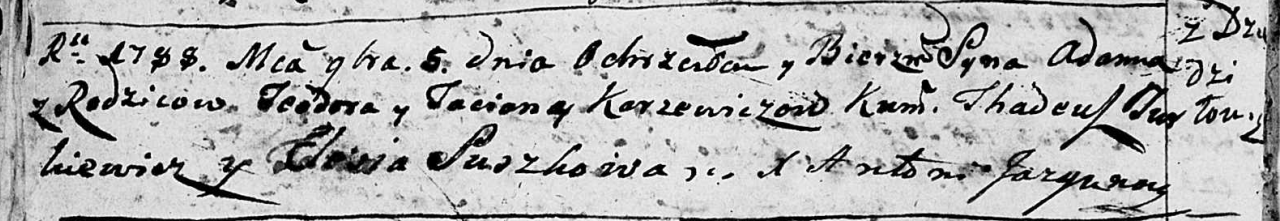 Rᵘ 1788. Mca 9bra. 5. dnia Ochrzciłem y Bierzm Syna Adama
z Rodzicow Teodora y Tacianny Karzewiczow Kum. Thadeusz Jur
kiewicz y Puszkowa x Antoni Jazgunowy
z Dzie
dzi
łowi